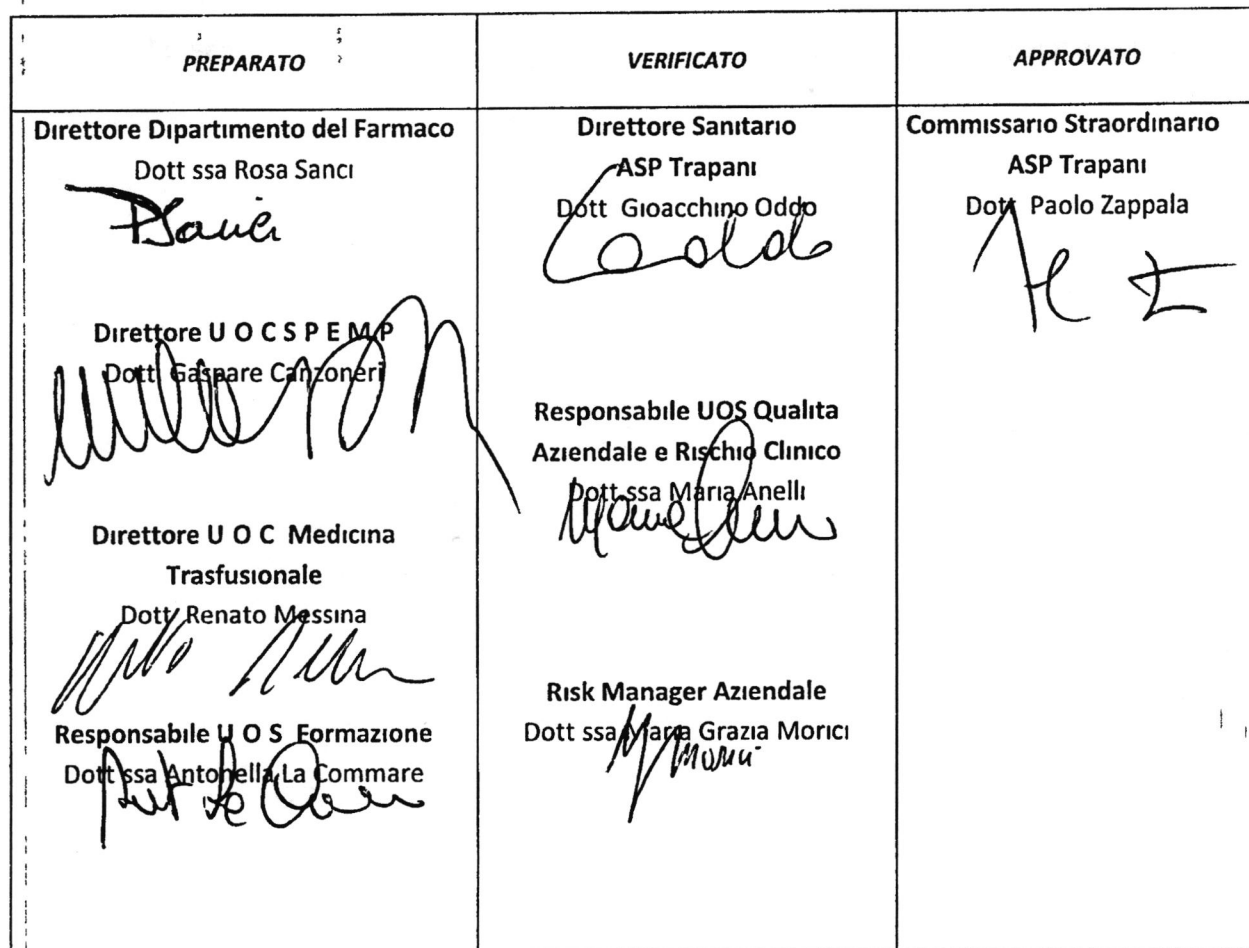 PREPARATO
VERIFICATO
APPROVATO
Direttore Dipartimento del Farmaco
Dott ssa Rosa Sanci
Direttore U O C S P E M P
Dott Gaspare Canzoneri
Direttore U O C Medicina
Trasfusionale
Dott Renato Messina
Responsabile U O S Formazione
Dott ssa Antonella La Commare
Direttore Sanitario
ASP Trapani
Dott Gioacchino Oddo
Responsabile UOS Qualita
Aziendale e Rischio Clinico
Dott ssa Maria Anelli
Risk Manager Aziendale
Dott ssa Maria Grazia Morici
Commissario Straordinario
ASP Trapani
Dott Paolo Zappala